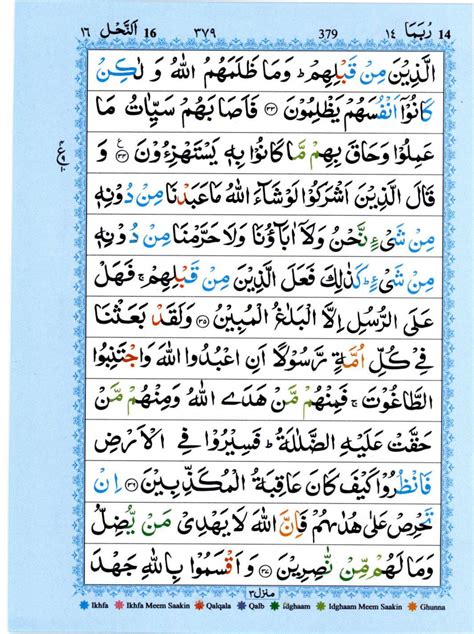 اَلنَّحْل 16 ١٦ ٣٧٩ 379 رُبَمَا ١٤ 14
الَّذِيْنَ مِنْ قَبْلِهِمْ ؕ وَمَا ظَلَمَهُمُ اللّٰهُ وَ لٰكِنْ
كَانُوْۤا اَنْفُسَهُمْ يَظْلِمُوْنَ ﴿۳۳﴾ فَاَصَابَهُمْ سَيِّاٰتُ مَا
عَمِلُوْا وَحَاقَ بِهِمْ مَّا كَانُوْا بِهٖ يَسْتَهْزِءُوْنَ ﴿۳۴﴾ وَ
قَالَ الَّذِيْنَ اَشْرَكُوْا لَوْ شَآءَ اللّٰهُ مَا عَبَدْنَا مِنْ دُوْنِهٖ
مِنْ شَىْءٍ نَّحْنُ وَلَاۤ اٰبَآؤُنَا وَلَا حَرَّمْنَا مِنْ دُوْنِهٖ
مِنْ شَىْءٍ ؕ كَذٰلِكَ فَعَلَ الَّذِيْنَ مِنْ قَبْلِهِمْ ۚ فَهَلْ
عَلَى الرُّسُلِ اِلَّا الْبَلٰغُ الْمُبِيْنُ ﴿۳۵﴾ وَلَقَدْ بَعَثْنَا
فِىْ كُلِّ اُمَّةٍ رَّسُوْلًا اَنِ اعْبُدُوا اللّٰهَ وَاجْتَنِبُوا
الطَّاغُوْتَ ۚ فَمِنْهُمْ مَّنْ هَدَى اللّٰهُ وَمِنْهُمْ مَّنْ
حَقَّتْ عَلَيْهِ الضَّلٰلَةُ ؕ فَسِيْرُوْا فِى الْاَرْضِ
فَانْظُرُوْا كَيْفَ كَانَ عَاقِبَةُ الْمُكَذِّبِيْنَ ﴿۳۶﴾ اِنْ
تَحْرِصْ عَلٰى هُدٰىهُمْ فَاِنَّ اللّٰهَ لَا يَهْدِىْ مَنْ يُّضِلُّ
وَمَا لَهُمْ مِّنْ نّٰصِرِيْنَ ﴿۳۷﴾ وَاَقْسَمُوْا بِاللّٰهِ جَهْدَ
منزل ٣
Ikhfa Ikhfa Meem Saakin Qalqala Qalb Idghaam Idghaam Meem Saakin Ghunna